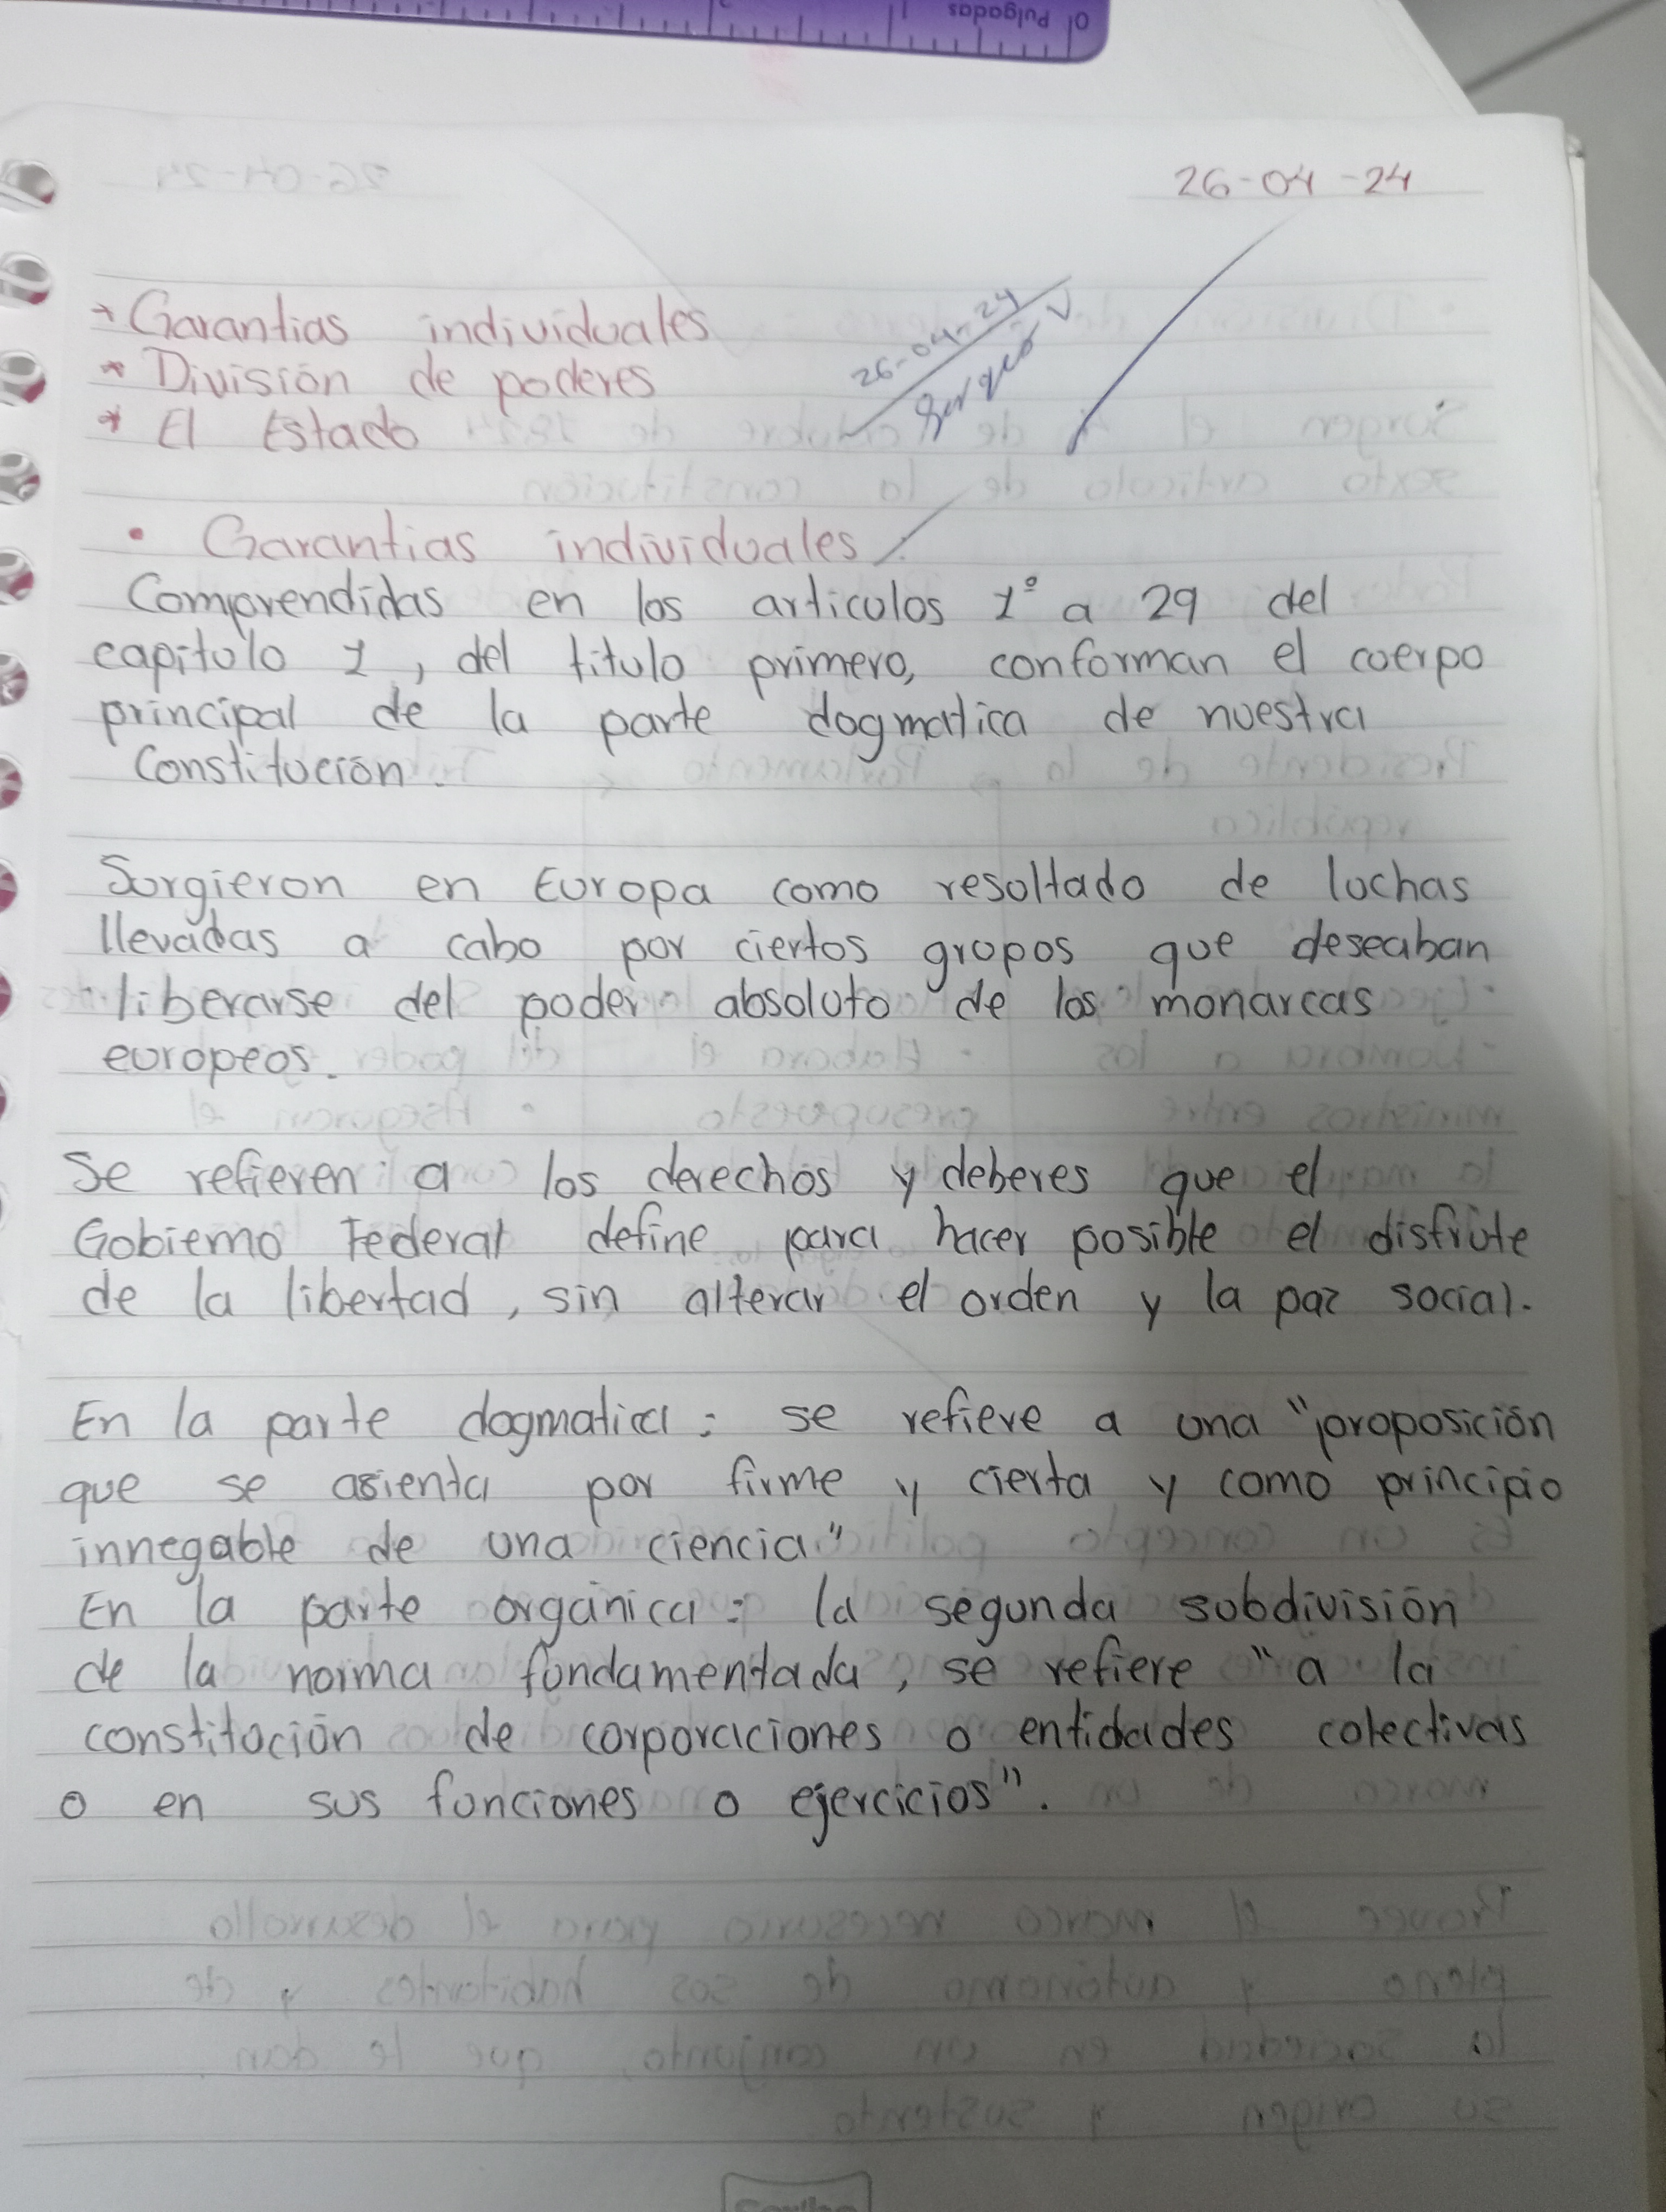 0 Pulgadas
26-04-24
* Garantias individuales
* División de poderes
* El Estado
26-04-24
• Garantias individuales.
Comprendidas en los articulos 1° a 29 del
capitulo 1, del titulo primero, conforman el cuerpo
principal de la parte dogmatica de nuestra
Constitución.
Surgieron en Europa como resultado de luchas
llevadas a cabo por ciertos grupos que deseaban
liberarse del poder absoluto de los monarcas
europeos.
Se refieren a los derechos y deberes que el
Gobierno Federal define para hacer posible el disfrute
de la libertad, sin alterar el orden y la paz social.
En la parte dogmatica: se refiere a una "proposición
que se asienta por firme y cierta y como principio
innegable de una ciencia"
En la parte orgánica: la segunda subdivisión
de la norma fundamentada, se refiere "a la
constitución de corporaciones o entidades colectivas
o en sus funciones o ejercicios".